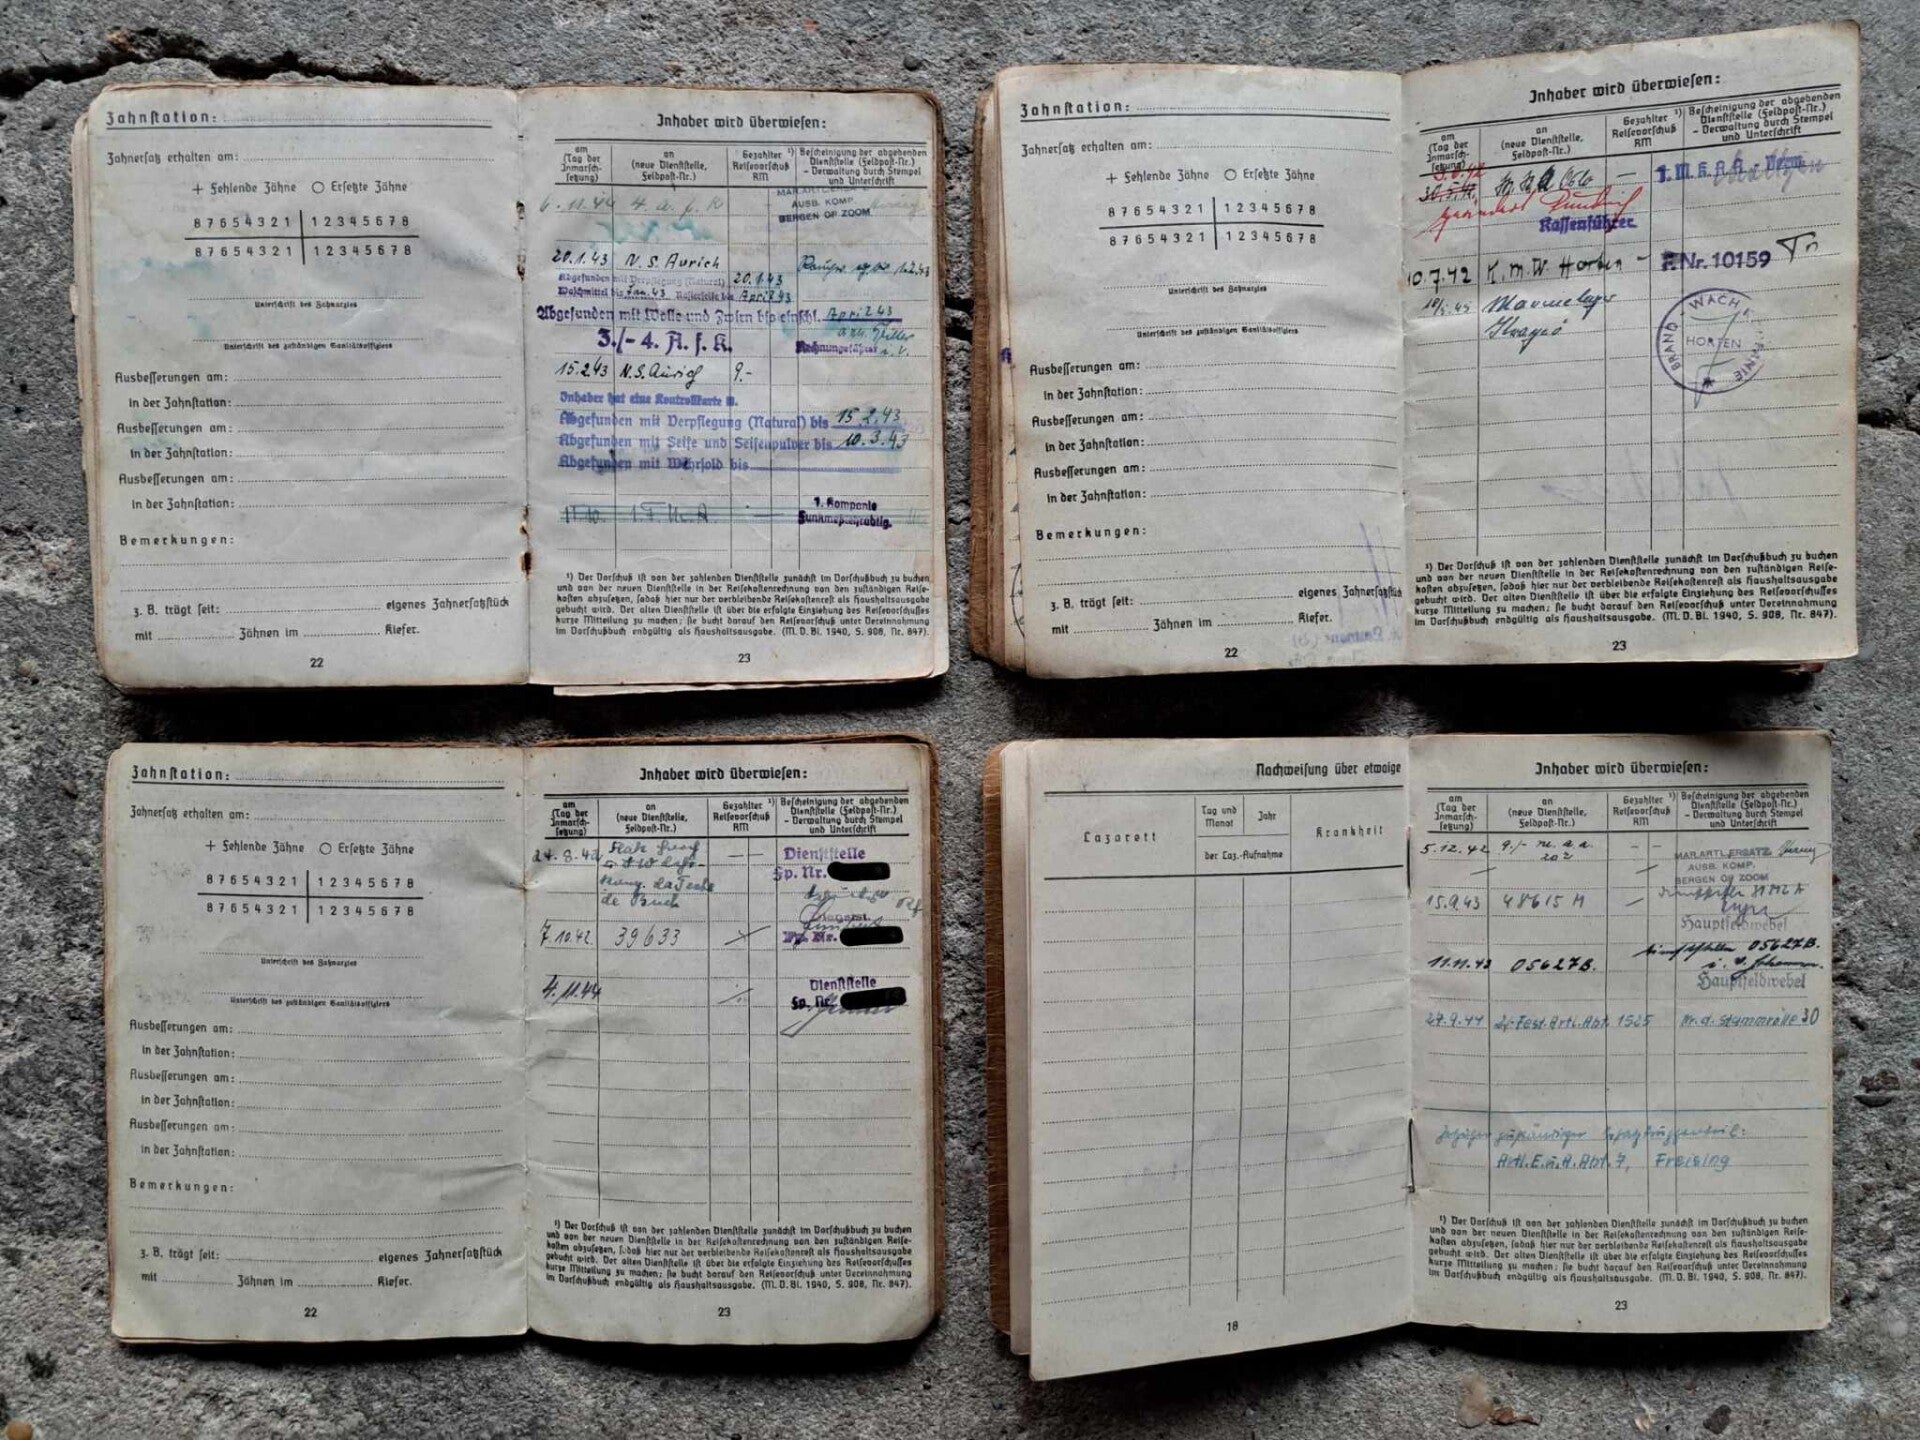 Zahnstation:
Zahnersatz erhalten am:
+ Fehlende Zähne ○ Ersetzte Zähne
8 7 6 5 4 3 2 1 | 1 2 3 4 5 6 7 8
8 7 6 5 4 3 2 1 | 1 2 3 4 5 6 7 8
Unterschrift des Zahnarztes
Unterschrift des zuständigen Sanitätsoffiziers
Ausbesserungen am:
in der Zahnstation:
Ausbesserungen am:
in der Zahnstation:
Ausbesserungen am:
in der Zahnstation:
Bemerkungen:
z. B. trägt seit: eigenes Zahnersatzstück
mit Zähnen im Kiefer.
22
Inhaber wird überwiesen:
am (Tag der Inmarschsetzung)
an (neue Dienststelle, Feldpost-Nr.)
Gezahlter ¹) Reisevorschuß RM
Bescheinigung der abgebenden Dienststelle (Feldpost-Nr.) - Verwaltung durch Stempel und Unterschrift
6.11.44 4. a. f. K
AUSB. KOMP.
BERGEN OP ZOOM
20.1.43 N. S. Aurich
Abgefunden mit Verpflegung (Natural) 20.1.43
Waschmittel bis Jan. 43 April 43
Abgefunden mit Wolle und Zwirn bis einschl. April 43
3./- 4. A. f. K.
Rechnungsführer
15.2.43 N.S. Aurich 9.-
Inhaber hat eine Kontrollkarte
Abgefunden mit Verpflegung (Natural) bis 15.2.43
Abgefunden mit Seife und Seifenpulver bis 10.3.43
Abgefunden mit Wehrsold bis
1. Kompanie
¹) Der Vorschuß ist von der zahlenden Dienststelle zunächst im Vorschußbuch zu buchen
und von der neuen Dienststelle in der Reisekostenrechnung von den zuständigen Reise-
kosten abzusetzen, sodaß hier nur der verbleibende Reisekostenrest als Haushaltsausgabe
gebucht wird. Der alten Dienststelle ist über die erfolgte Einziehung des Reisevorschusses
kurze Mitteilung zu machen; sie bucht darauf den Reisevorschuß unter Vereinnahmung
im Vorschußbuch endgültig als Haushaltsausgabe. (M. D. Bl. 1940, S. 908, Nr. 847).
23
Zahnstation:
Zahnersatz erhalten am:
+ Fehlende Zähne ○ Ersetzte Zähne
8 7 6 5 4 3 2 1 | 1 2 3 4 5 6 7 8
8 7 6 5 4 3 2 1 | 1 2 3 4 5 6 7 8
Unterschrift des Zahnarztes
Unterschrift des zuständigen Sanitätsoffiziers
Ausbesserungen am:
in der Zahnstation:
Ausbesserungen am:
in der Zahnstation:
Ausbesserungen am:
in der Zahnstation:
Bemerkungen:
z. B. trägt seit: eigenes Zahnersatzstück
mit Zähnen im Kiefer.
22
Inhaber wird überwiesen:
am (Tag der Inmarschsetzung)
an (neue Dienststelle, Feldpost-Nr.)
Gezahlter ¹) Reisevorschuß RM
Bescheinigung der abgebenden Dienststelle (Feldpost-Nr.) - Verwaltung durch Stempel und Unterschrift
Oslo
Kassenführer
10.7.42 K.M.W. Horten - F.Nr. 10159
BRAND-WACH
HORTEN
¹) Der Vorschuß ist von der zahlenden Dienststelle zunächst im Vorschußbuch zu buchen
und von der neuen Dienststelle in der Reisekostenrechnung von den zuständigen Reise-
kosten abzusetzen, sodaß hier nur der verbleibende Reisekostenrest als Haushaltsausgabe
gebucht wird. Der alten Dienststelle ist über die erfolgte Einziehung des Reisevorschusses
kurze Mitteilung zu machen; sie bucht darauf den Reisevorschuß unter Vereinnahmung
im Vorschußbuch endgültig als Haushaltsausgabe. (M. D. Bl. 1940, S. 908, Nr. 847).
23
Zahnstation:
Zahnersatz erhalten am:
+ Fehlende Zähne ○ Ersetzte Zähne
8 7 6 5 4 3 2 1 | 1 2 3 4 5 6 7 8
8 7 6 5 4 3 2 1 | 1 2 3 4 5 6 7 8
Unterschrift des Zahnarztes
Unterschrift des zuständigen Sanitätsoffiziers
Ausbesserungen am:
in der Zahnstation:
Ausbesserungen am:
in der Zahnstation:
Ausbesserungen am:
in der Zahnstation:
Bemerkungen:
z. B. trägt seit: eigenes Zahnersatzstück
mit Zähnen im Kiefer.
22
Inhaber wird überwiesen:
am (Tag der Inmarschsetzung)
an (neue Dienststelle, Feldpost-Nr.)
Gezahlter ¹) Reisevorschuß RM
Bescheinigung der abgebenden Dienststelle (Feldpost-Nr.) - Verwaltung durch Stempel und Unterschrift
24.8.42
Dienststelle
Fp. Nr.
La Teste
de Buch
7.10.42 39633
Fp. Nr.
4.11.44
Dienststelle
Fp. Nr.
¹) Der Vorschuß ist von der zahlenden Dienststelle zunächst im Vorschußbuch zu buchen
und von der neuen Dienststelle in der Reisekostenrechnung von den zuständigen Reise-
kosten abzusetzen, sodaß hier nur der verbleibende Reisekostenrest als Haushaltsausgabe
gebucht wird. Der alten Dienststelle ist über die erfolgte Einziehung des Reisevorschusses
kurze Mitteilung zu machen; sie bucht darauf den Reisevorschuß unter Vereinnahmung
im Vorschußbuch endgültig als Haushaltsausgabe. (M. D. Bl. 1940, S. 908, Nr. 847).
23
Nachweisung über etwaige
Lazarett
Tag und Monat
Jahr
der Laz.-Aufnahme
Krankheit
18
Inhaber wird überwiesen:
am (Tag der Inmarschsetzung)
an (neue Dienststelle, Feldpost-Nr.)
Gezahlter ¹) Reisevorschuß RM
Bescheinigung der abgebenden Dienststelle (Feldpost-Nr.) - Verwaltung durch Stempel und Unterschrift
5.12.42 9./- m. a. a. 202
MAR.ARTL.ERSATZ
AUSB. KOMP.
BERGEN OP ZOOM
15.9.43 48615 A
Hauptfeldwebel
11.11.43 05627B.
05627B.
Hauptfeldwebel
27.9.44 2/-Fest.Artl.Abt. 1525 Nr. d. Stammrolle 30
Artl.E.u.A.Abt. 7, Freising
¹) Der Vorschuß ist von der zahlenden Dienststelle zunächst im Vorschußbuch zu buchen
und von der neuen Dienststelle in der Reisekostenrechnung von den zuständigen Reise-
kosten abzusetzen, sodaß hier nur der verbleibende Reisekostenrest als Haushaltsausgabe
gebucht wird. Der alten Dienststelle ist über die erfolgte Einziehung des Reisevorschusses
kurze Mitteilung zu machen; sie bucht darauf den Reisevorschuß unter Vereinnahmung
im Vorschußbuch endgültig als Haushaltsausgabe. (M. D. Bl. 1940, S. 908, Nr. 847).
23